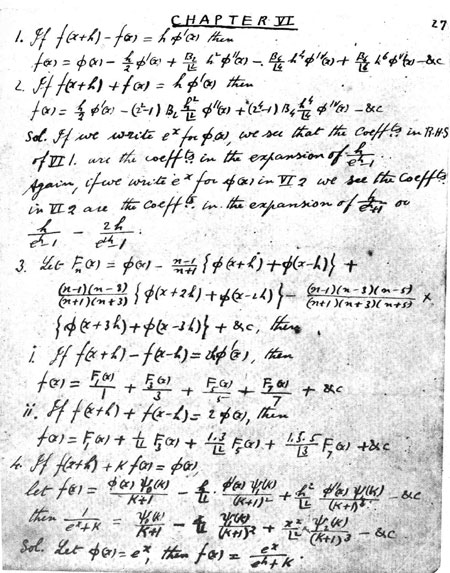 CHAPTER VI
27
1. If f(x+h) - f(x) = h φ'(x) then
f(x) = φ(x) - h/2 φ'(x) + B₂/⌊2 h² φ''(x) - B₄/⌊4 h⁴ φ''''(x) + B₆/⌊6 h⁶ φ⁶(x) - &c
2. If f(x+h) + f(x) = h φ'(x) then
f(x) = h/2 φ'(x) - (2²-1) B₂ h²/⌊2 φ''(x) + (2⁴-1) B₄ h⁴/⌊4 φ''''(x) - &c
Sol. If we write eˣ for φ(x), we see that the Coeffts in R.H.S
of VI 1. are the coeffts in the expansion of h/(eʰ-1).
Again, if we write eˣ for φ(x) in VI 2 we see the Coeffts
in VI 2 are the Coeffts in the expansion of h/(eʰ+1) or
h/(eʰ-1) - 2h/(e²ʰ-1).
3. Let Fₙ(x) = φ(x) - (n-1)/(n+1) {φ(x+h) + φ(x-h)} +
(n-1)(n-3)/(n+1)(n+3) {φ(x+2h) + φ(x-2h)} - (n-1)(n-3)(n-5)/(n+1)(n+3)(n+5) ×
{φ(x+3h) + φ(x-3h)} + &c, then
i. If f(x+h) - f(x-h) = 2h φ'(x), then
f(x) = F₁(x)/1 + F₃(x)/3 + F₅(x)/5 + F₇(x)/7 + &c
ii. If f(x+h) + f(x-h) = 2 φ(x), then
f(x) = F₁(x) + 1/⌊1 F₃(x) + 1.3/⌊2 F₅(x) + 1.3.5/⌊3 F₇(x) + &c
4. If f(x+h) + K f(x) = φ(x),
let f(x) = φ(x) ψ₀(K)/(K+1) - h/⌊1 · φ'(x) ψ₁(K)/(K+1)² + h²/⌊2 φ''(x) ψ₂(K)/(K+1)³ - &c
then 1/(eˣ+K) = ψ₀(K)/(K+1) - x/⌊1 ψ₁(K)/(K+1)² + x²/⌊2 ψ₂(K)/(K+1)³ - &c.
Sol. Let φ(x) = eˣ, then f(x) = eˣ/(eʰ+K).